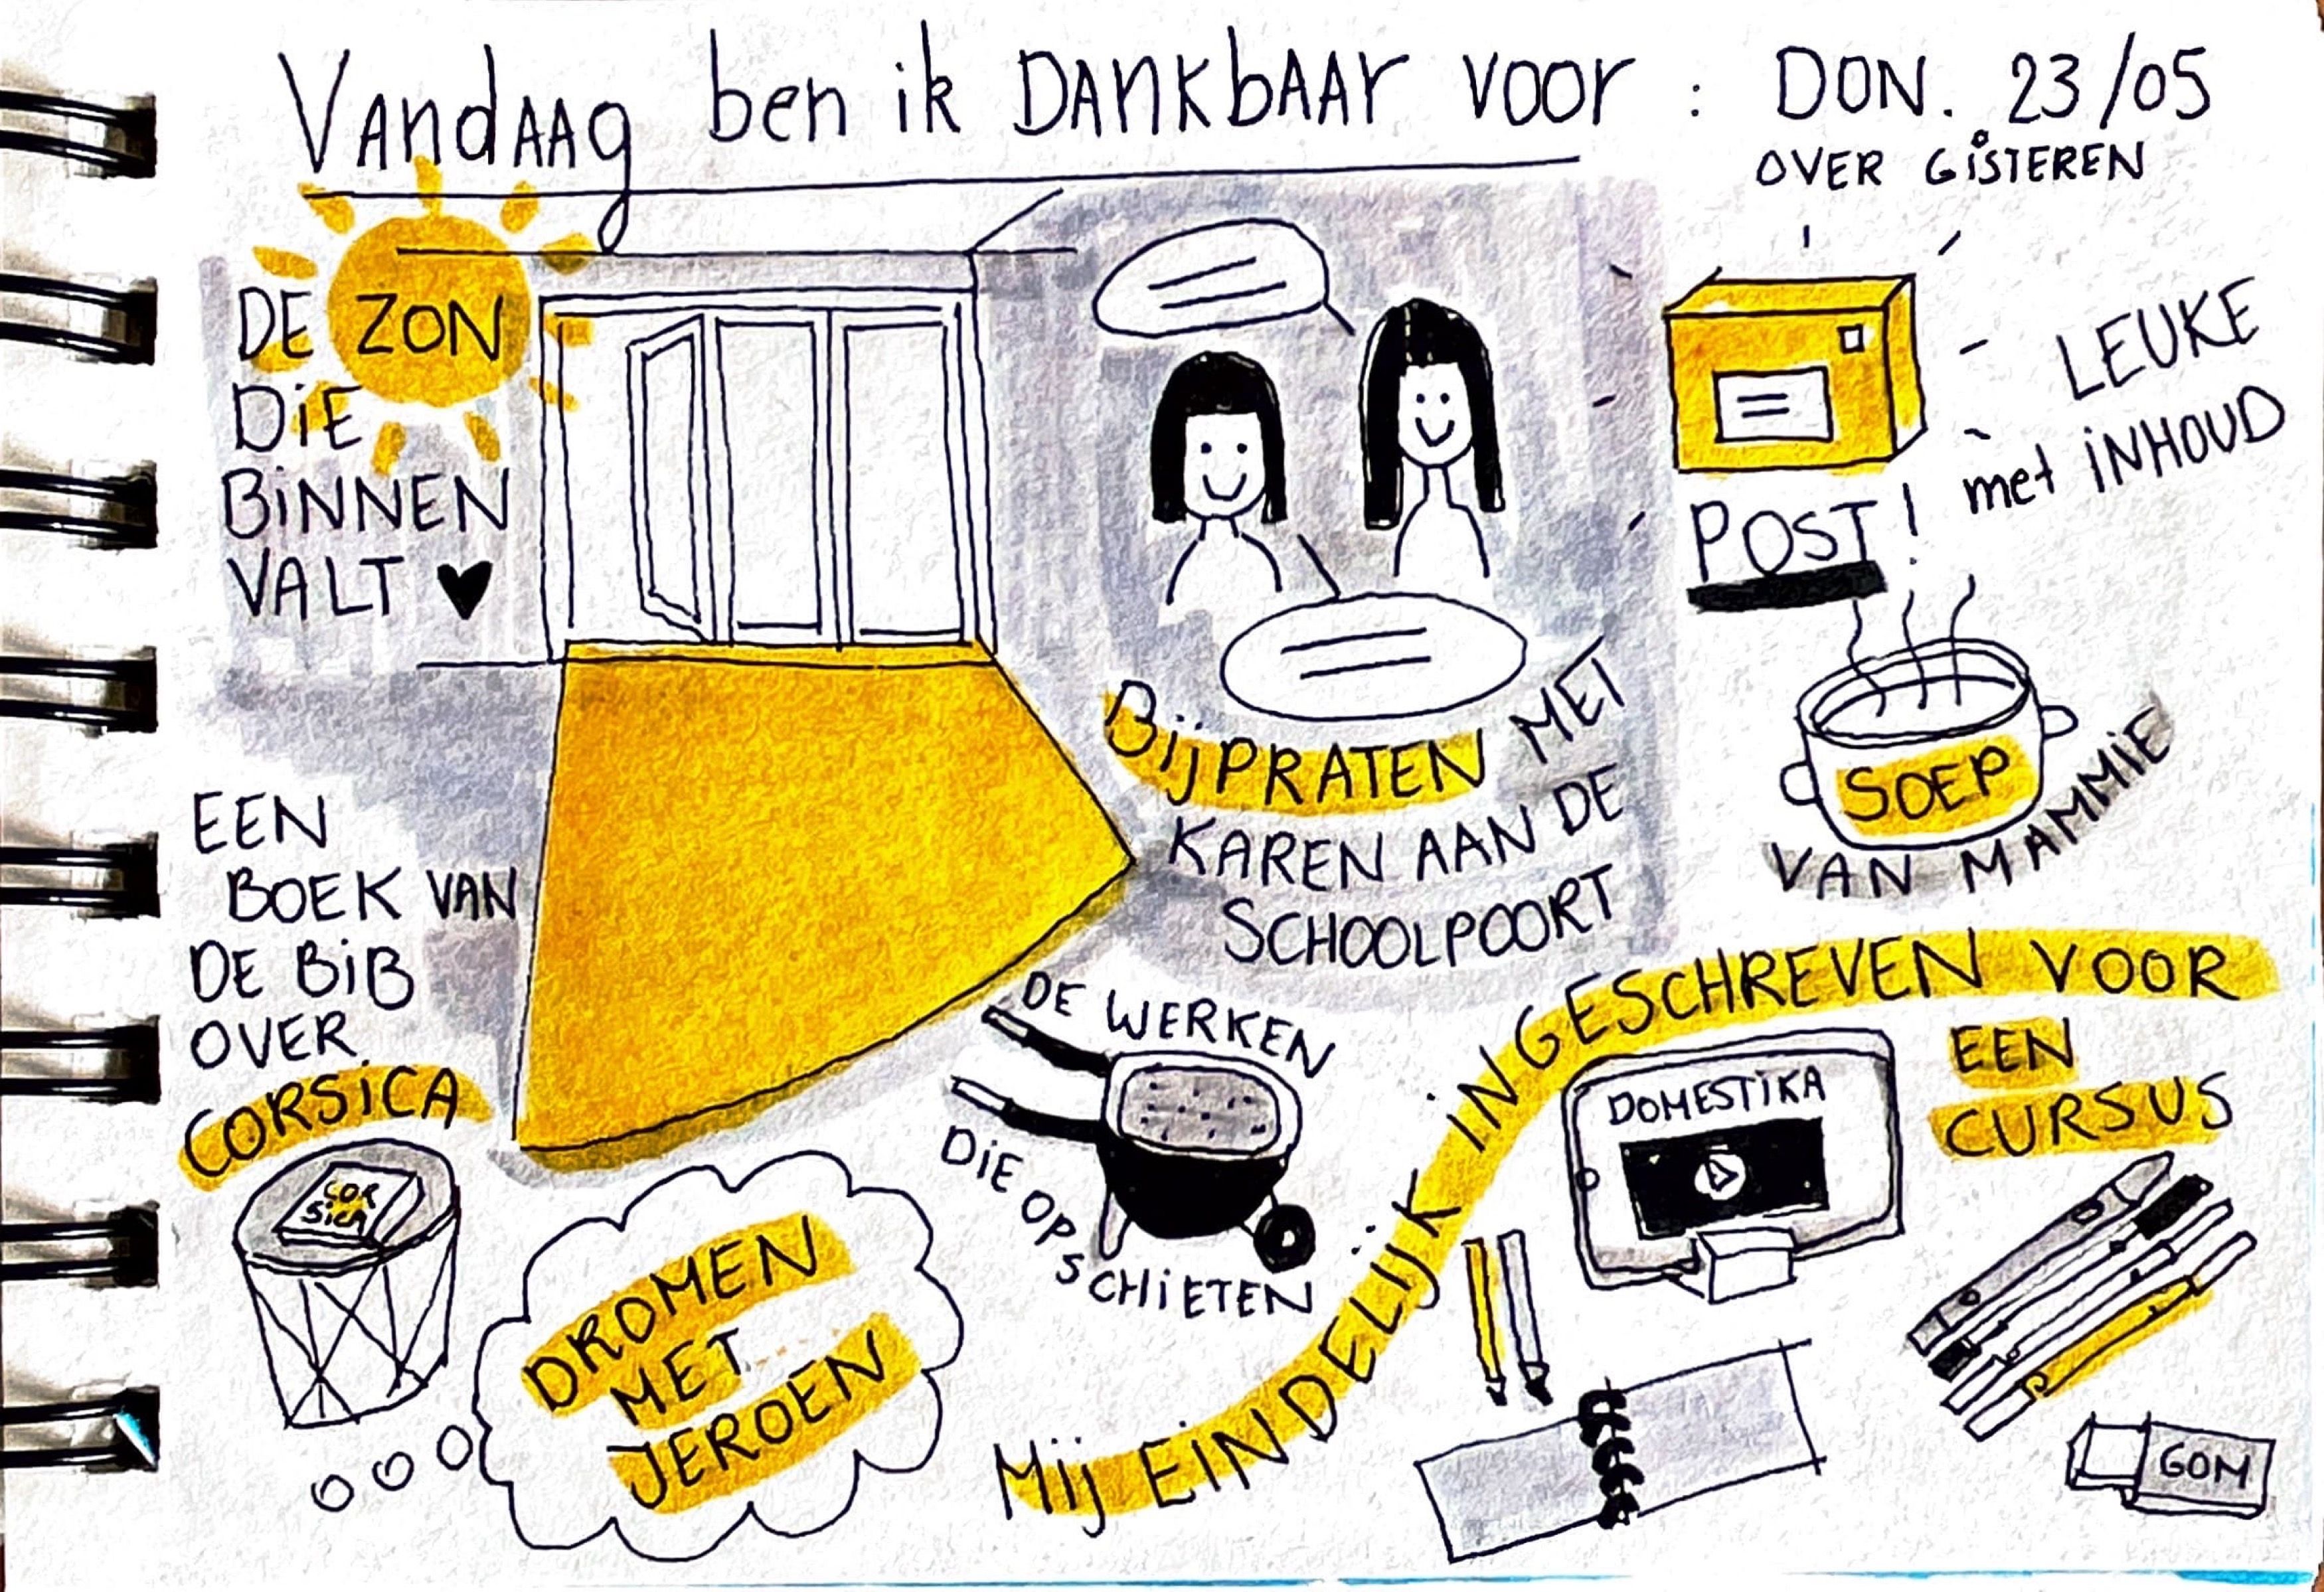 VANDAAG ben ik DANKBAAR VOOR : DON. 23/05
OVER GISTEREN
DE ZON
DiE
BiNNEN
VALT ♥
BijPRATEN MET
KAREN AAN DE
SCHOOLPOORT
LEUKE
POST! met iNHOUD
SOEP
VAN MAMMIE
EEN
BOEK VAN
DE BiB
OVER
CORSiCA
COR
SiCA
DROMEN
MET
JEROEN
DE WERKEN
DiE OPSCHiETEN
Mij EiNDELijK iNGESCHREVEN VOOR
EEN
CURSUS
DOMESTiKA
GOM